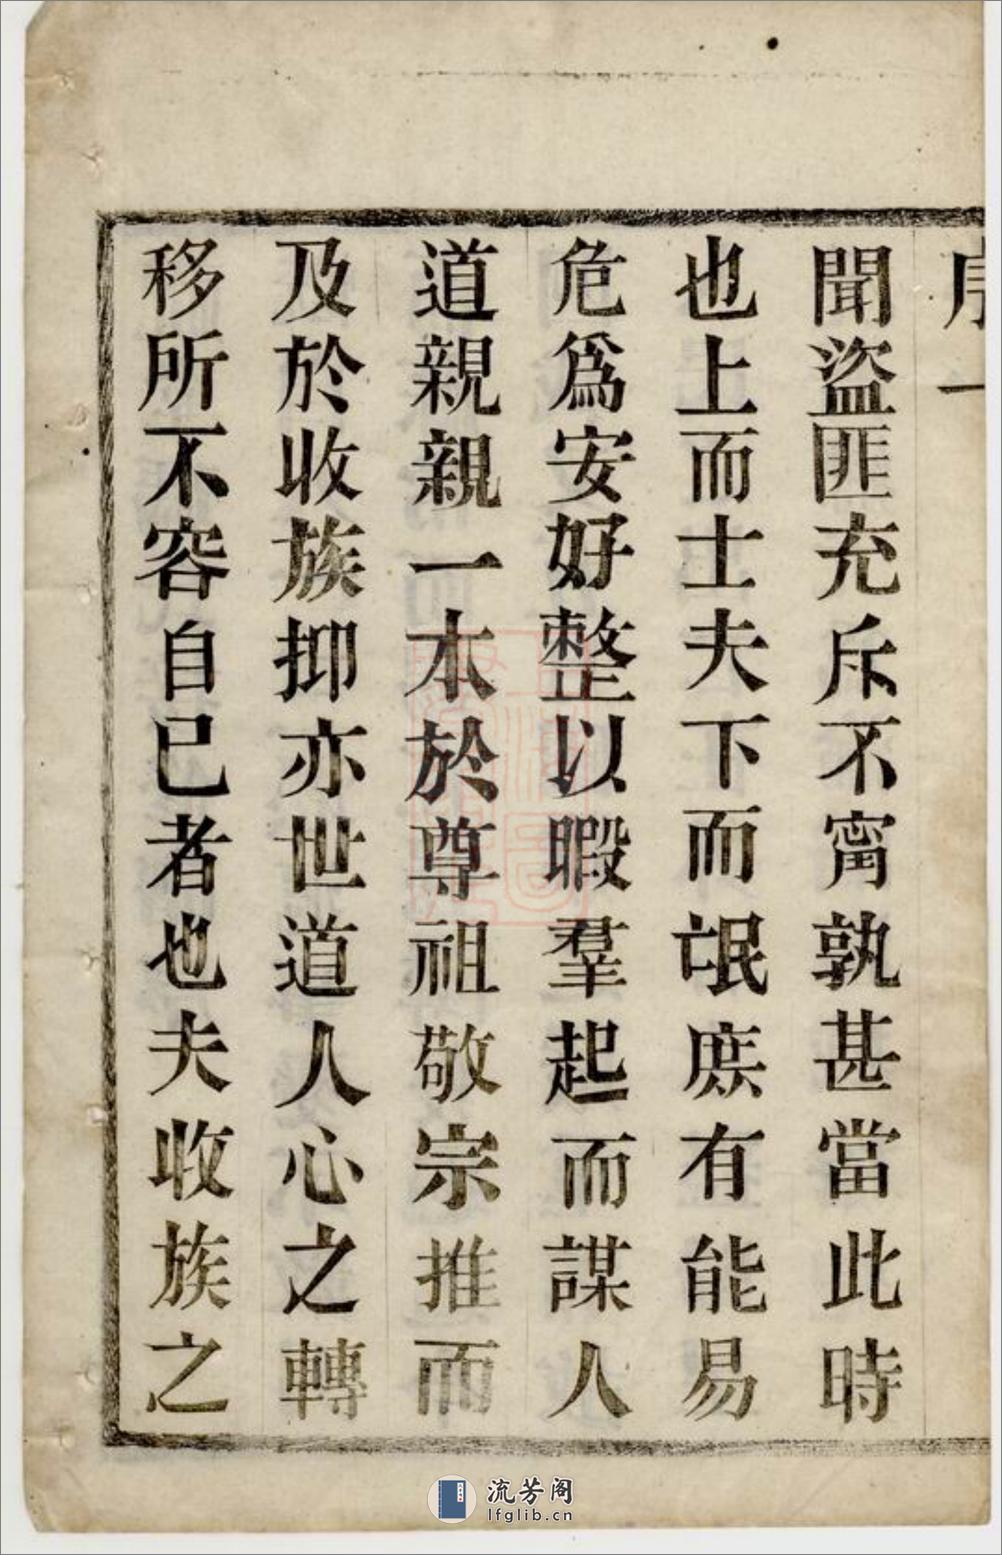 序一
聞盜匪充斥不甯孰甚當此時
也上而士夫下而氓庶有能易
危爲安好整以暇羣起而謀人
道親親一本於尊祖敬宗推而
及於收族抑亦世道人心之轉
移所不容自已者也夫收族之
流芳阁
lfglib.cn